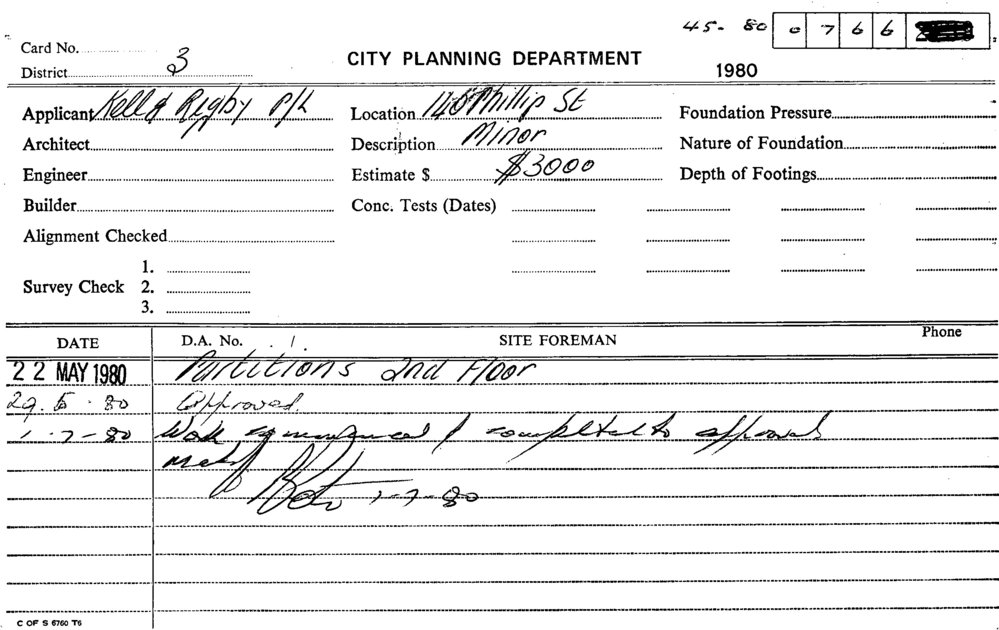 45-80 0 7 6 6
Card No.
District 3
CITY PLANNING DEPARTMENT
1980
Applicant Kell & Rigby P/L Location 140 Phillip St Foundation Pressure
Architect Description Minor Nature of Foundation
Engineer Estimate $ $3000 Depth of Footings
Builder Conc. Tests (Dates)
Alignment Checked
1.
Survey Check 2.
3.
DATE D.A. No. SITE FOREMAN Phone
22 MAY 1980 Partitions 2nd Floor
29.5.80 Approved.
1-7-80 Work commenced & completed to approval
1-7-80
C OF S 6760 T6